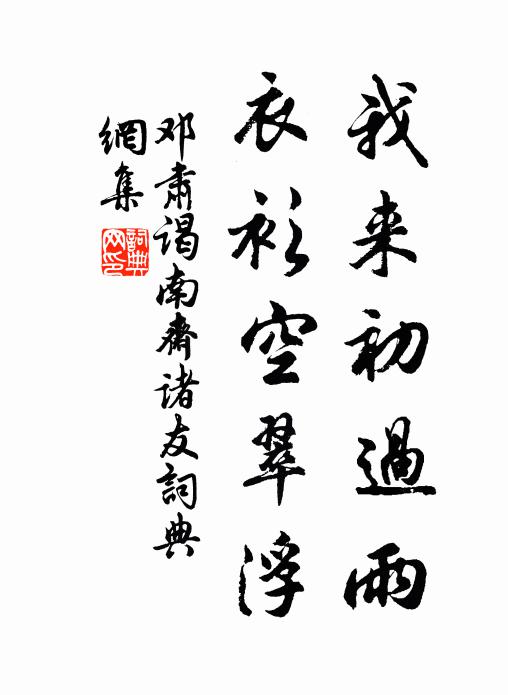 我来初過雨
衣衫空翠浮
邓肅谒南齋诸友詞典
網集
詞典
网印